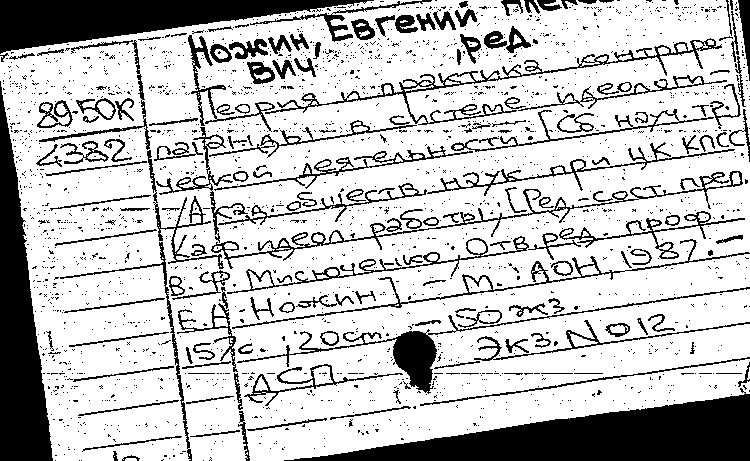 Ножин, Евгений Алекса
вич ,ред.
89-50к
4382
Теория и практика контрпро-
паганды в системе идеологи-
ческой деятельности: [Сб. науч. тр.]
/Акад. обществ. наук при ЦК КПСС
Каф. идеол. работы; [Ред.-сост. преп.
В.Ф. Мисюченко; Отв. ред. проф.
Е.А. Ножин]. — М.: АОН, 1987. —
157с.; 20см. — 150 экз.
Экз. N 012
ДСП.